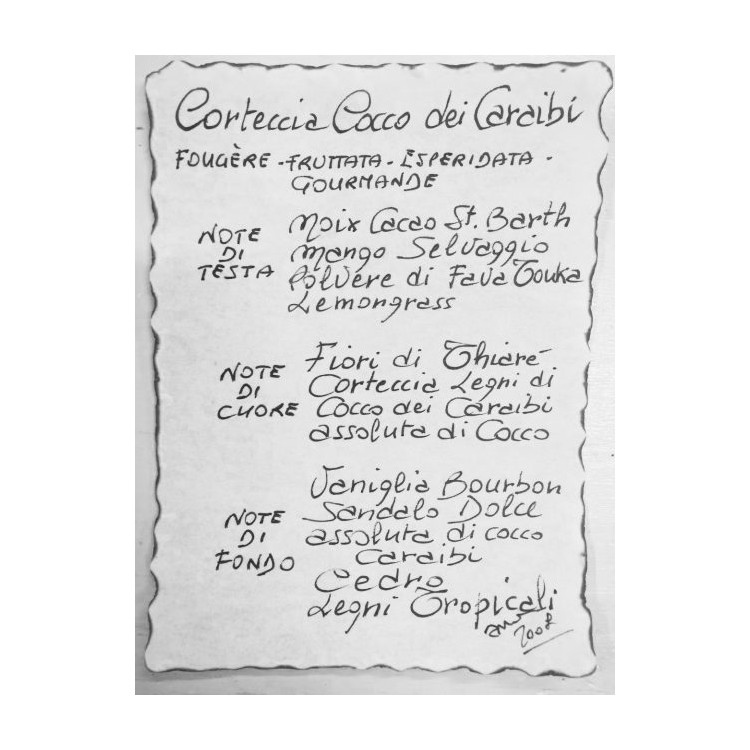 Corteccia Cocco dei Caraibi
FOUGÈRE - FRUTTATA - ESPERIDATA -
GOURMANDE
NOTE
DI
TESTA
Noix Cacao St. Barth
Mango Selvaggio
Polvere di Fava Touka
Lemongrass
NOTE
DI
CUORE
Fiori di Thiaré
Corteccia Legni di
Cocco dei Caraibi
assoluta di Cocco
NOTE
DI
FONDO
Vaniglia Bourbon
Sandalo Dolce
assoluta di cocco
Caraibi
Cedro
Legni Tropicali